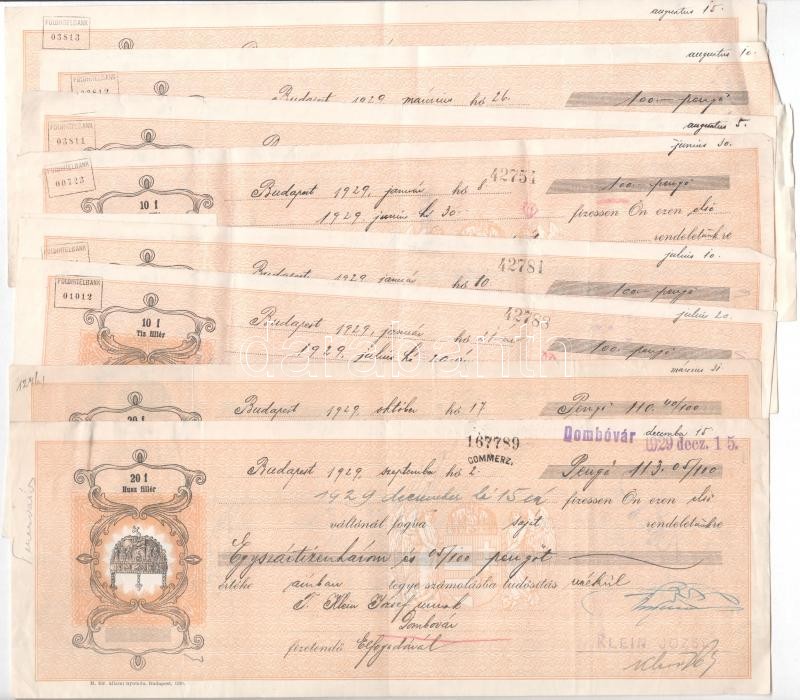 augusztus 15.
FÖLDHITELBANK
03813
augusztus 10.
FÖLDHITELBANK
03812
Budapest 1929 március hó 26.
100.— pengő
augusztus 5.
FÖLDHITELBANK
03811
június 30.
FÖLDHITELBANK
00723
10 f
Budapest 1929. január hó 8
42754
100.— pengő
1929. június hó 30.
fizessen Ön ezen első
rendeletünkre
július 10.
FÖLDHITELBANK
Budapest 1929. január hó 10.
42781
100.— pengő
július 20.
FÖLDHITELBANK
01012
10 f
Tiz fillér
Budapest 1929. január hó
42783
100.— pengő
1929. július hó 20-án
március 31
20 f
Budapest 1929. október hó 17
Pengő 110.40/100
december 15
Dombóvár
1929 decz. 15.
167789
COMMERZ.
20 f
Husz fillér
Budapest 1929. szeptember hó 2.
Pengő 113.05/100
1929 december hó 15 én fizessen Ön ezen első
váltónál fogva saját rendeletünkre
Egyszáztizenhárom és 05/100 pengőt
értéke áruban tegye számolásba tudósítás nélkül
T. Klein József urnak
Dombóvár
fizetendő Elfogadául
KLEIN JÓZSEF
M. kir. állami nyomda. Budapest, 1926.
darabanth